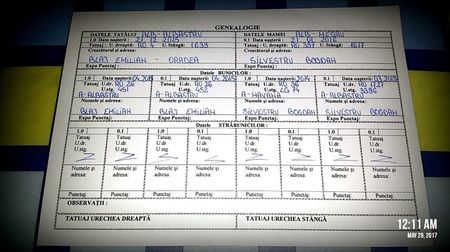 GENEALOGIE
DATELE TATĂLUI ALB-ALBASTRU
DATELE MAMEI ALB-NEGRU
1.0 Data nașterii: 21.12.2015
0.1 Data nașterii: 21.01.2016
Tatuaj: U. dreaptă: RO 4 U. stângă: 1633
Tatuaj: U. dreaptă: RO 397 U. stângă: 1617
Crescătorul și adresa:
Crescătorul și adresa:
BLAJ EMILIAN - ORADEA
SILVESTRU BOGDAN
Expo Punctaj:
Expo Punctaj:
Datele BUNICILOR:
1.0 0.1 1.0 0.1
Tatuaj U.dr. RO 26
U.stg. 451
Tatuaj U.dr. RO 26
U.stg. 452
Tatuaj U.dr.
U.stg.
Tatuaj U.dr. RO 1727
U.stg. 3396
A-ALBASTRU A-ALBASTRU A-HAVANA A-ALBASTRU
Numele și adresa: Numele și adresa: Numele și adresa: Numele și adresa:
BLAJ EMILIAN BLAJ EMILIAN SILVESTRU BOGDAN SILVESTRU BOGDAN
Expo Punctaj: Expo Punctaj: Expo Punctaj: Expo Punctaj:
Datele STRĂBUNICILOR:
1.0 0.1 1.0 0.1 1.0 0.1 1.0 0.1
Tatuaj Tatuaj Tatuaj Tatuaj Tatuaj Tatuaj Tatuaj Tatuaj
U.dr. U.dr. U.dr. U.dr. U.dr. U.dr. U.dr. U.dr.
U.stg. U.stg. U.stg. U.stg. U.stg. U.stg. U.stg. U.stg.
Numele și Numele și Numele și Numele și Numele și Numele și Numele și Numele și
adresa: adresa: adresa: adresa: adresa: adresa: adresa: adresa:
Punctaj: Punctaj: Punctaj: Punctaj: Punctaj: Punctaj: Punctaj: Punctaj:
OBSERVAȚII:
TATUAJ URECHEA DREAPTĂ
TATUAJ URECHEA STÂNGĂ
12:11 AM
MAY 29, 2017